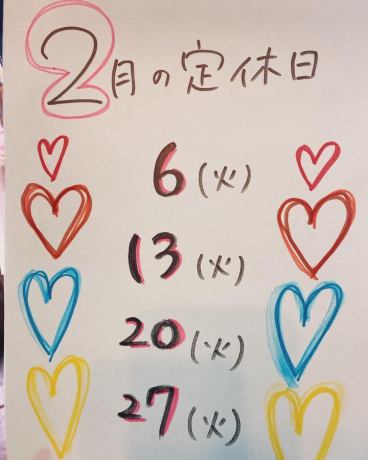 2月の定休日
6(火)
13(火)
20(火)
27(火)